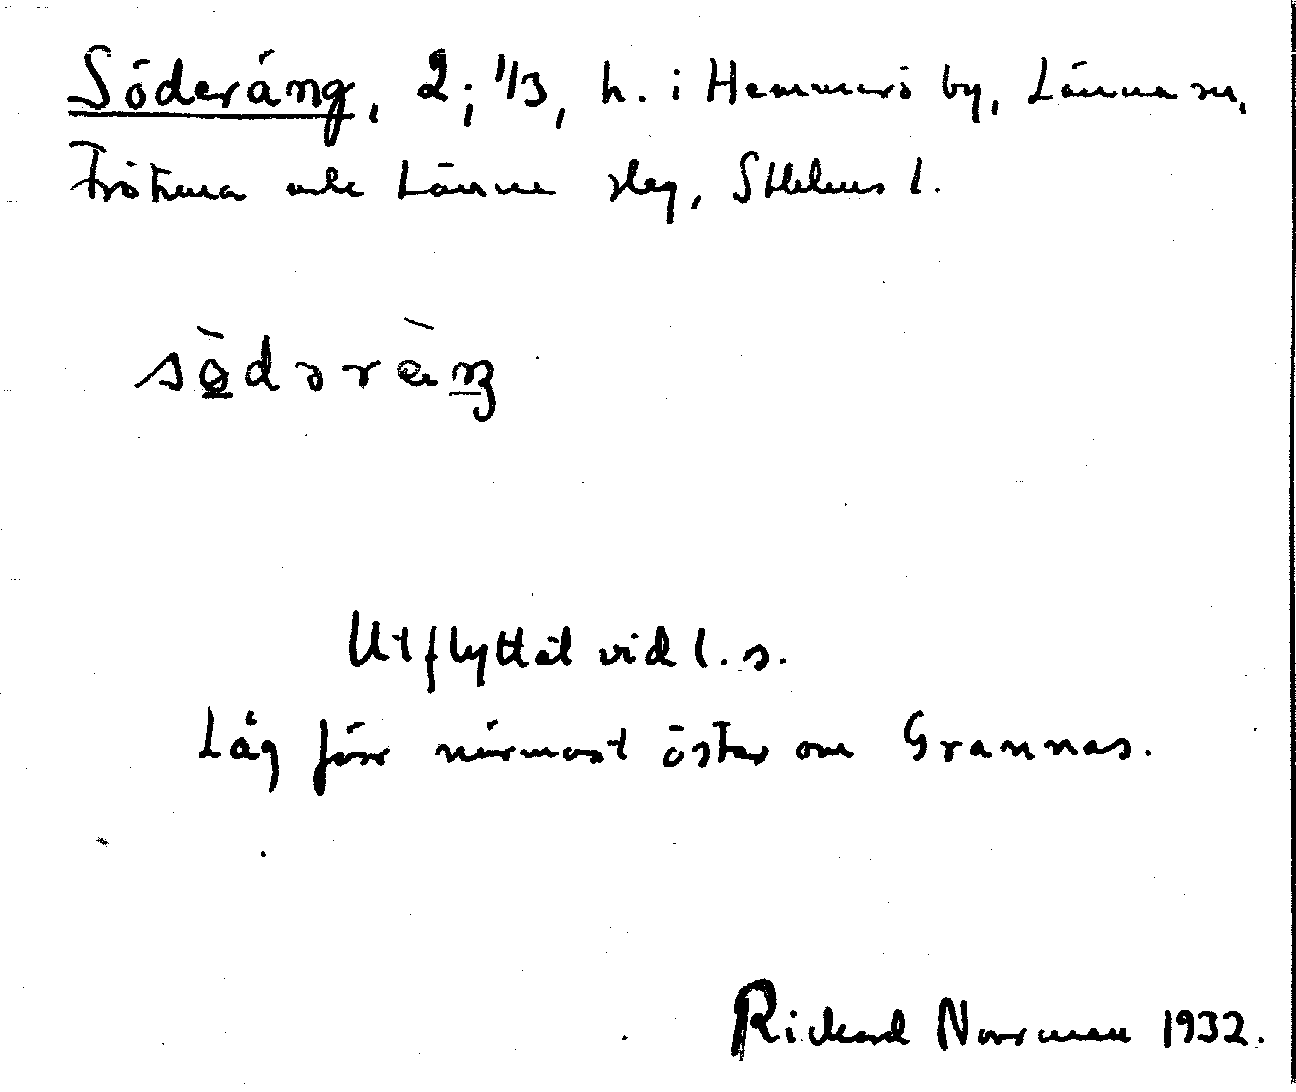 Söderäng, 2; 1/3, h. i Hemmarö by, Länna sn,
Frötuna och Länna slag, Sthlms l.
södəräŋ
Utflyttat vid l. s.
Låg förr närmast öster om Grannas.
Rickard Norrman 1932.